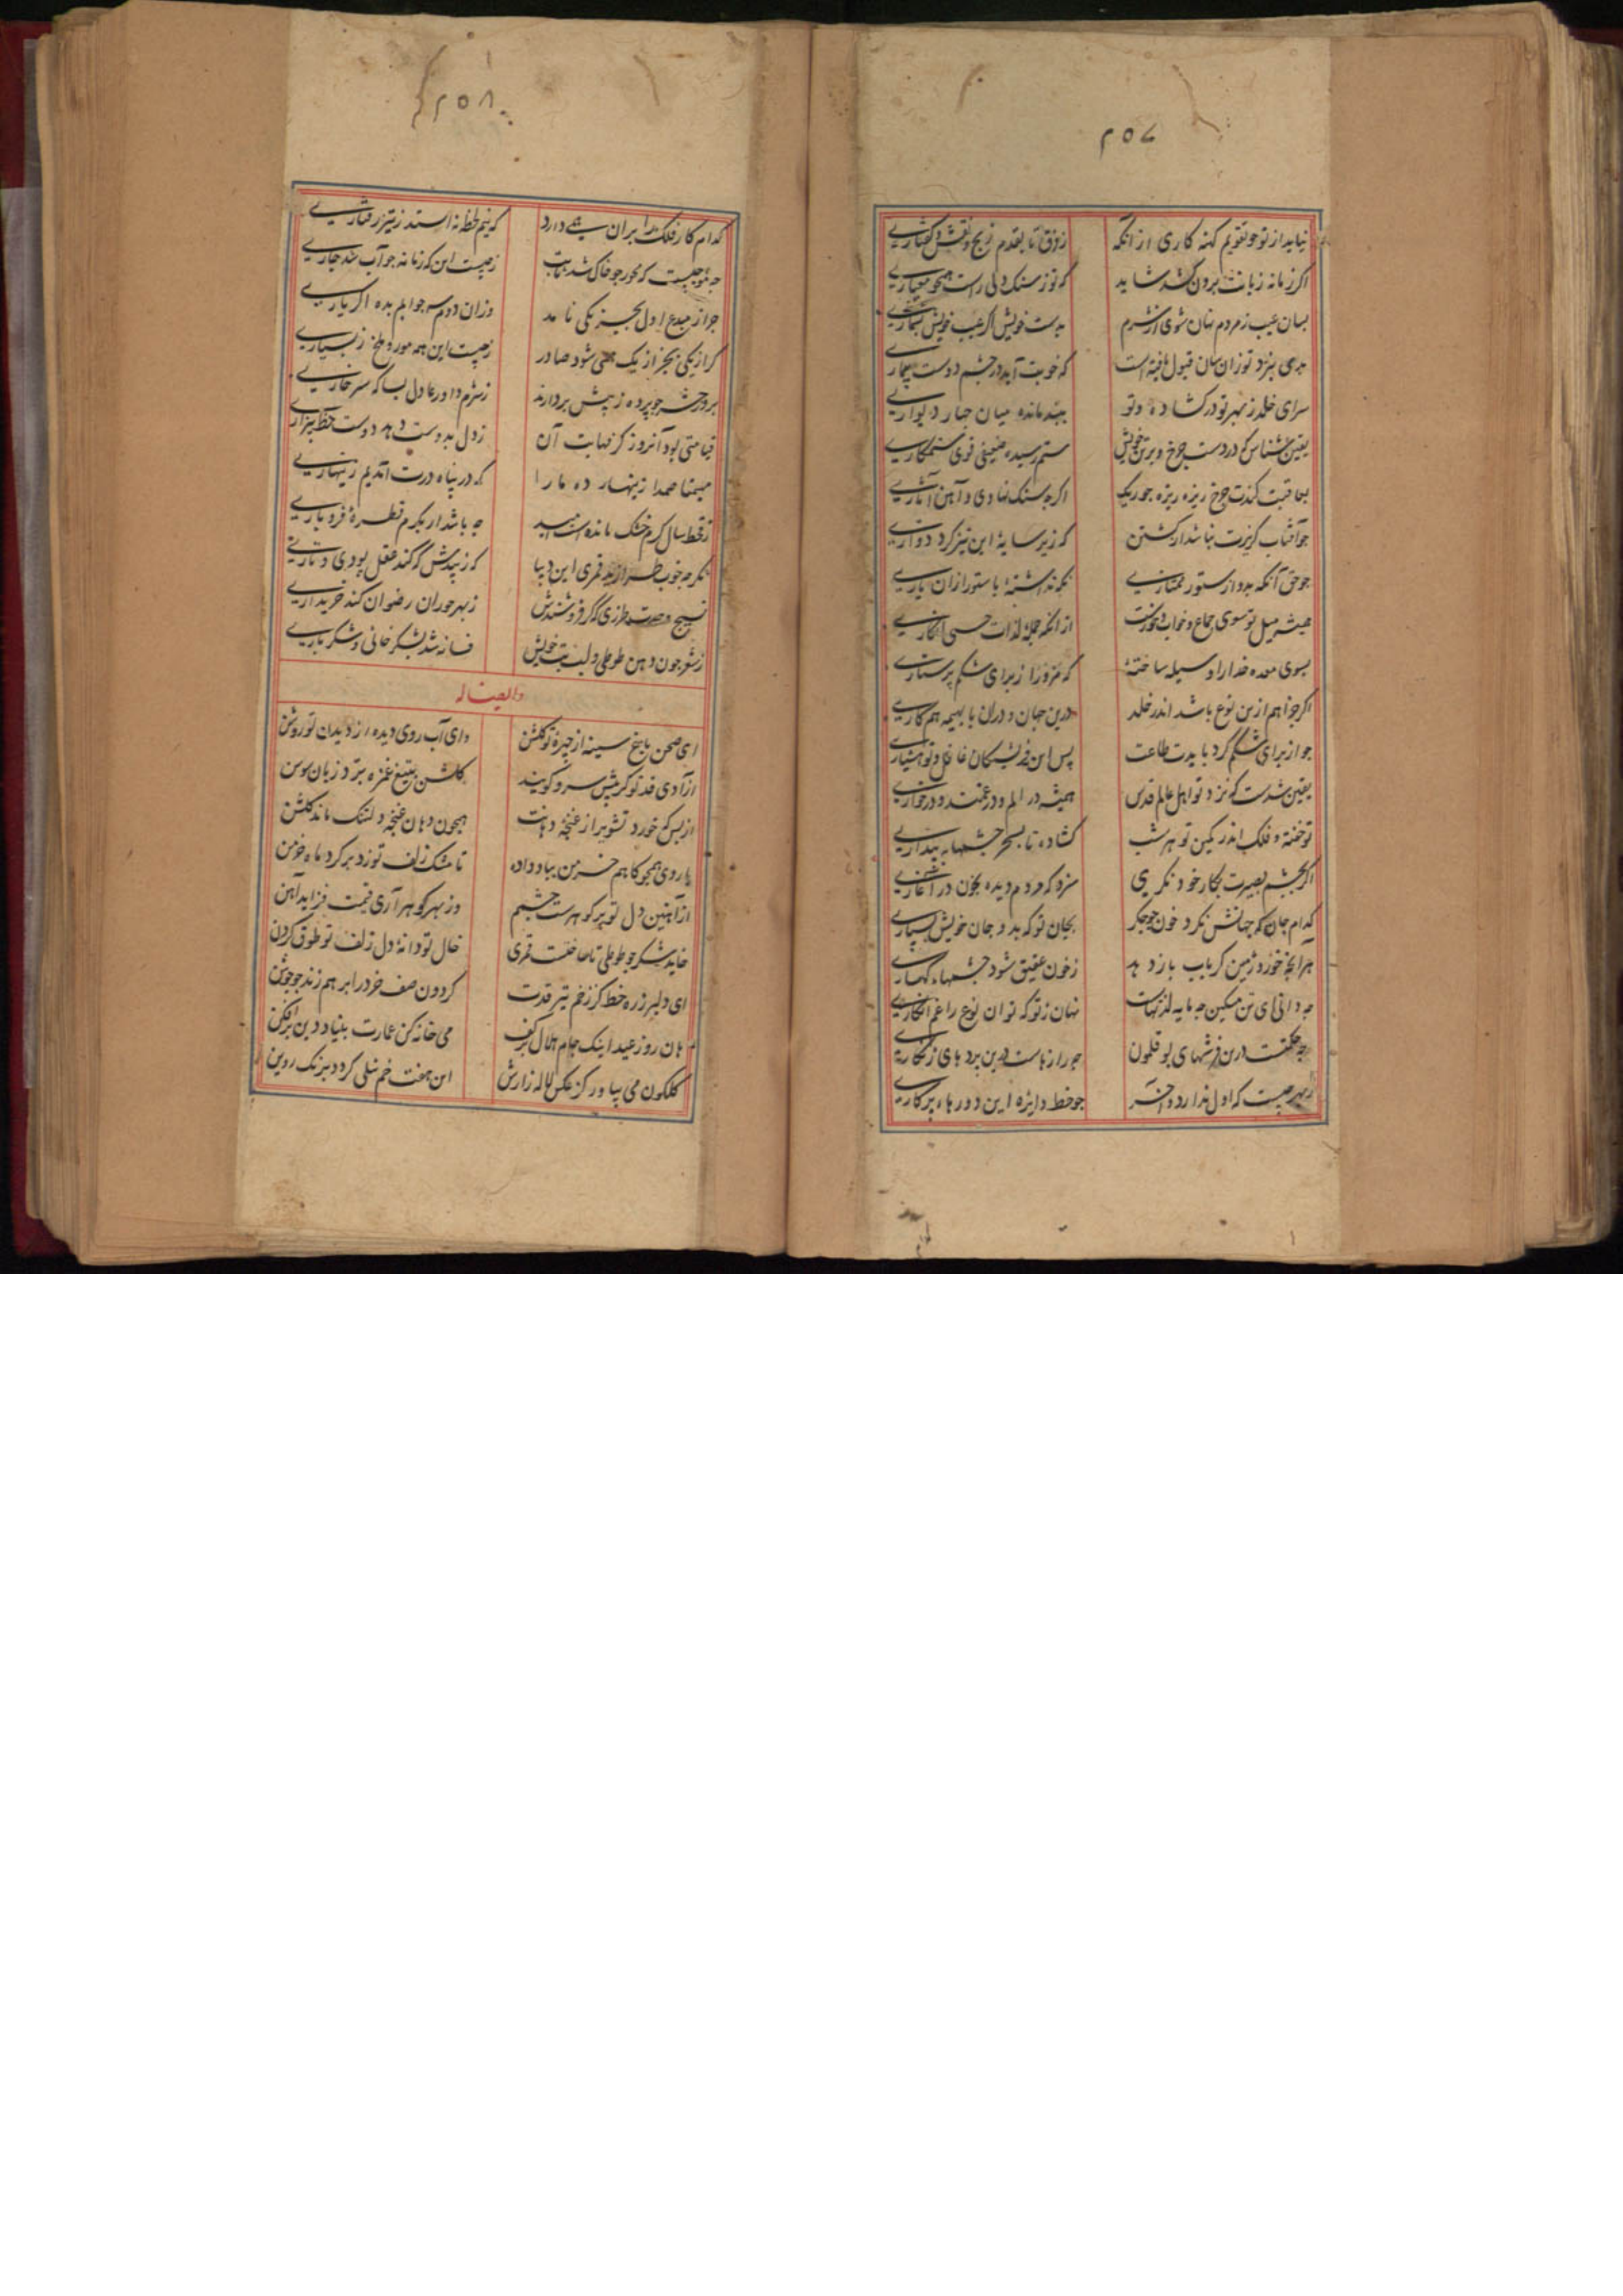 ۲۵۷
نیاید از تو چو تقویم کهنه کاری از آنکه ز فرق تا بقدم زیج و نقش و گفتاری
اکر زمانه زبانت برون کشد شاید که تو ز سنک دلی راست همچو معیاری
بسان عیب ز مردم نهان شوی از شرم بدست خویش اکر عیب خویش بشماری
بدی بنزد تو زان سان قبول یافته است که خوبت آید در چشم دوست بیماری
سرای خلد ز بهر تو در کشاده و تو ببند مانده میان چهار دیواری
یقین شناس که در دست چرخ و بر تن خویش ستم رسیده ضعیفی قوی ستمکاری
بعاقبت کندت چرخ ریزه ریزه چو ریک اکرچه سنک نهادی و آهن آثاری
چو آفتاب کزیرت نباشد از کشتن که زیر سایه این تیزکرد دواری
چو حق آنکه بدو از ستور ممتازی نکه نداشته با ستور ازان یاری
همیشه میل تو سوی جماع و خواب و خورست از آنکه جمله لذات حسی انکاری
بسوی معده خدا را وسیله ساخته که مزورا ز برای شکم پرستاری
اکر چرا هم ازین نوع باشد اندر خلد درین جهان و دران با بهیمه هم کاری
چو از برای شکم کرد بایدت طاعت پس این فرشتکان غافل و تو هشیاری
یقین شدست که نزد تو اهل عالم قدس همیشه در الم و در غمند و در خواری
تو خفته و فلک اندر کمین تو هر شب کشاده تا بسحر چشمها به بیداری
اکر بچشم بصیرت بکار خود نکری سزد که مردم دیده بخون در آغاری
کدام جان که جهانش نکرد خون چو جکر بجان تو که بدو جان خویش نسپاری
هر آنچه خورد زمین کر بباب باز دهد ز خون عقیق شود چشمهاء کهساری
چه دانی ای تن مسکین چه مایه لذتهاست نهان ز تو که توان نوع را غم انکاری
چه حکمتست درین فرشهای بوقلمون چه رازهاست درین پردهای زنکاری
ز بهر چیست که اول ندارد و آخر چو خط دایره این دورهاء پرکاری
۲۵۸
کدام کار فلک را بران همی دارد که نیم لحظه نه استد ز تیز رفتاری
چه موجبست که محور چو خاک شد ثابت ز چیست این که زمانه چو آب شد جاری
چرا ز مبدع اول بجز یکی نامد وزان دوم سه جوابم بده اکر یاری
کر از یکی بجز از یک همی شود صادر ز چیست این همه مور و ملخ ز بسیاری
بروز حشر چو پرده ز پیش بردارند ز شرم داور عادل بسا که سر خاری
قیامتی بود آنروز کز نهایت آن ز دل بدوست دهد دوست خط بیزاری
مهیمنا صمدا زینهار ده ما را که در پناه درت آمدیم زینهاری
ز قحط سال کرم خشک مانده است امید چه باشد ار بکرم قطرهٔ فرو باری
نکر چه خوب طرازید قمری این دیبا که زیبدش که کند عقل پودی و تاری
نسیج وحدت طرازی که کر فروشندش ز بهر حوران رضوان کند خریداری
ز شعر چون دهن طوطی و لب بت خویش فسانه شد بشکر خائی و شکرباری
و ایضا له
ای صحن باغ سینه از چهرهٔ تو کلشن وای آب روی دیده از دیدن تو روشن
ز آزادی قد تو کر پیش سرو کویند کلشن بتیغ غمزه برد زبان سوسن
از بس که خورد تشویر از غنچهٔ دهانت همچون دهان غنچه دلتنک ماند کلشن
با روی همچو کاهم خرمن بباد داده تا مشک زلف تو زد بر کرد ماه خرمن
از آهنین دل تو پر کوهرست چشمم وز بهر کوهر آری قیمت فزاید آهن
خاید شکر چو طوطی تا ساخت قمری خال تو دانهٔ دل زلف تو طوق کردن
ای دلبر زره خط کز زخم تیر قدت کردون صف خرد را بر هم زند چو جوشن
هان روز عید اینک جام هلال بر کف می خانه کن عمارت بنیاد دین برافکن
کلکون می بیاور کز عکس لاله زارش این هفت خم نیلی کردد برنک روین